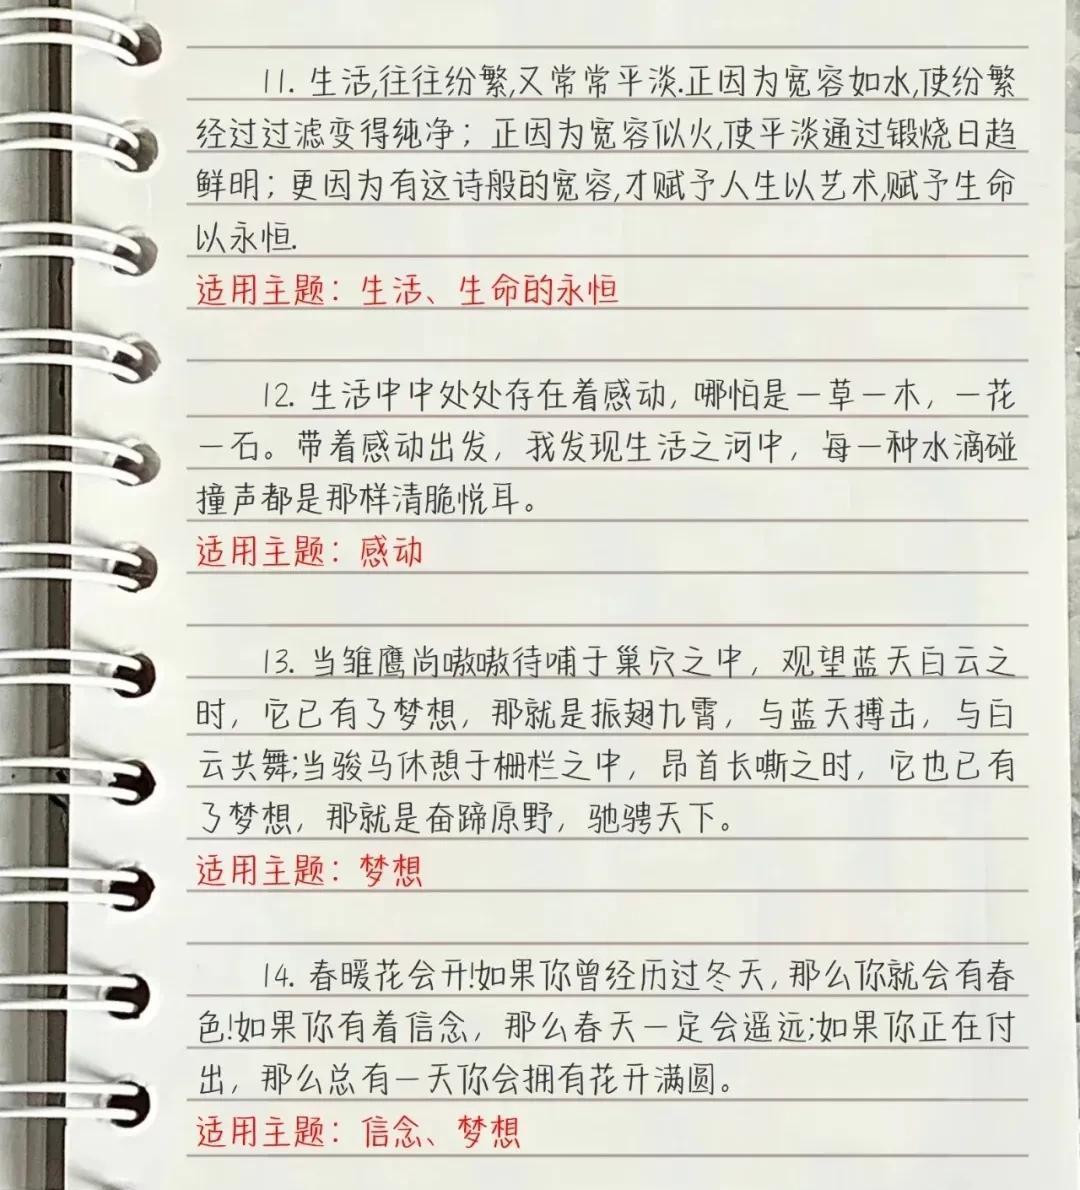 11. 生活,往往纷繁,又常常平淡.正因为宽容如水,使纷繁
经过过滤变得纯净；正因为宽容似火,使平淡通过锻烧日趋
鲜明；更因为有这诗般的宽容,才赋予人生以艺术,赋予生命
以永恒.
适用主题：生活、生命的永恒
12. 生活中中处处存在着感动，哪怕是一草一木，一花
一石。带着感动出发，我发现生活之河中，每一种水滴碰
撞声都是那样清脆悦耳。
适用主题：感动
13. 当雏鹰尚嗷嗷待哺于巢穴之中，观望蓝天白云之
时，它已有了梦想，那就是振翅九霄，与蓝天搏击，与白
云共舞;当骏马休憩于栅栏之中，昂首长嘶之时，它也已有
了梦想，那就是奋蹄原野，驰骋天下。
适用主题：梦想
14. 春暖花会开!如果你曾经历过冬天，那么你就会有春
色!如果你有着信念，那么春天一定会遥远;如果你正在付
出，那么总有一天你会拥有花开满圆。
适用主题：信念、梦想